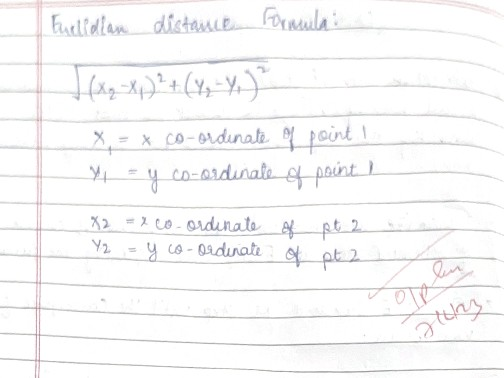 Euclidian distance Formula:
√(x₂-x₁)² + (y₂-y₁)²
x₁ = x co-ordinate of point 1
y₁ = y co-ordinate of point 1
x2 = x co-ordinate of pt 2
y2 = y co-ordinate of pt 2
O/P